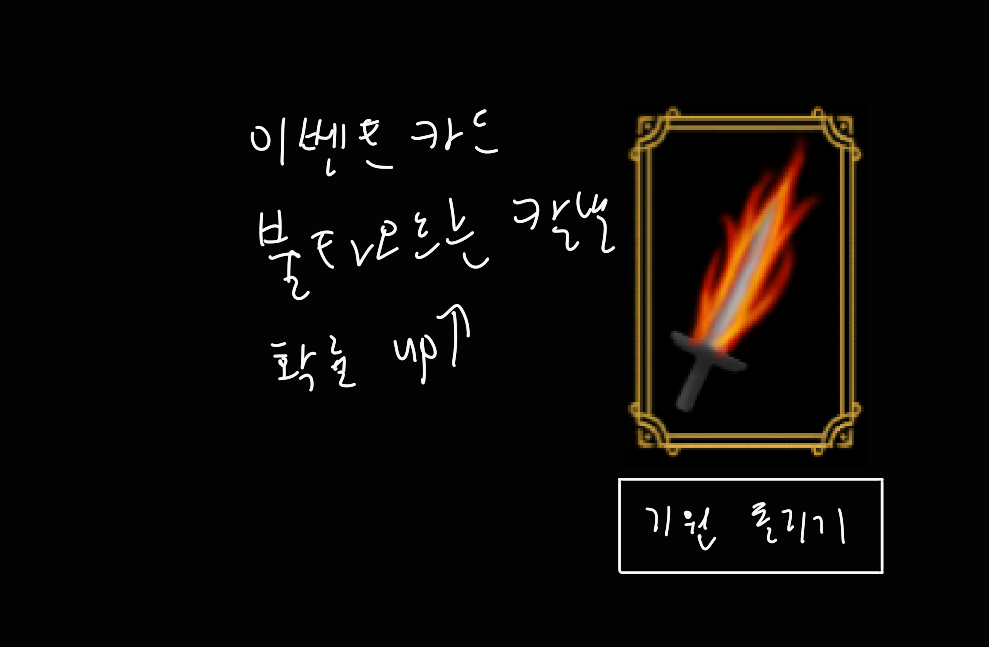 이벤트 카드
불타오르는 칼날
확률 up↑
기원 돌리기